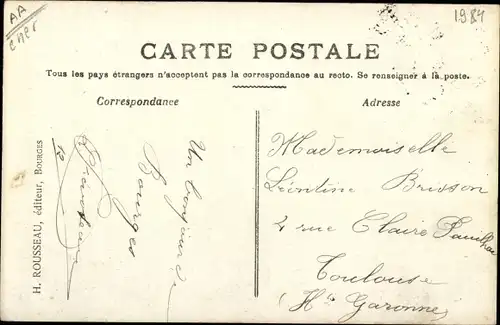 AA
cher
1984
CARTE POSTALE
Tous les pays étrangers n'acceptent pas la correspondance au recto. Se renseigner à la poste.
Correspondance
Adresse
H. ROUSSEAU, éditeur, BOURGES
Un bonjour de
Bourges
Mademoiselle
Léontine Brisson
2 rue Claire Pauilhac
Toulouse
(Hte Garonne)